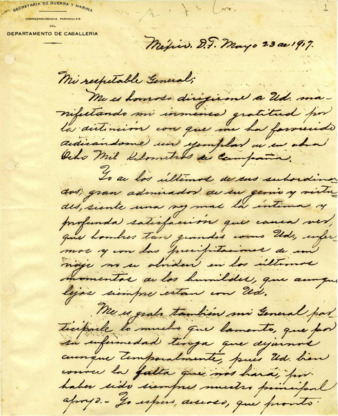 SECRETARIA DE GUERRA Y MARINA
CORRESPONDENCIA PARTICULAR
DEL
DEPARTAMENTO DE CABALLERIA
México, D.F. Mayo 23 de 1917.
Mi respetable General;
Me es honroso dirigirme a Ud. ma-
nifestando mi inmensa gratitud por
la distinción con que me ha favorecido
dedicándome un ejemplar de su obra
Ocho Mil Kilometros de Campaña.
Yo de los últimos de sus subordina-
dos, gran admirador de su genio y virtu-
des, siente una vez mas la intima y
profunda satisfacción que causa ver,
que hombres tan grandes como Ud, enfer-
mos y con las precipitaciones de un
viaje no se olviden en los últimos
momentos de los humildes, que aunque
lejos siempre estan con Ud.
Me es grato también mi General par-
ticiparle lo mucho que lamento, que por
su enfermedad tenga que dejarnos
aunque temporalmente, pues Ud. bien
conoce la falta que nos hará, por
haber sido siempre nuestro principal
apoyo.- Yo espero, deseoso, que pronto